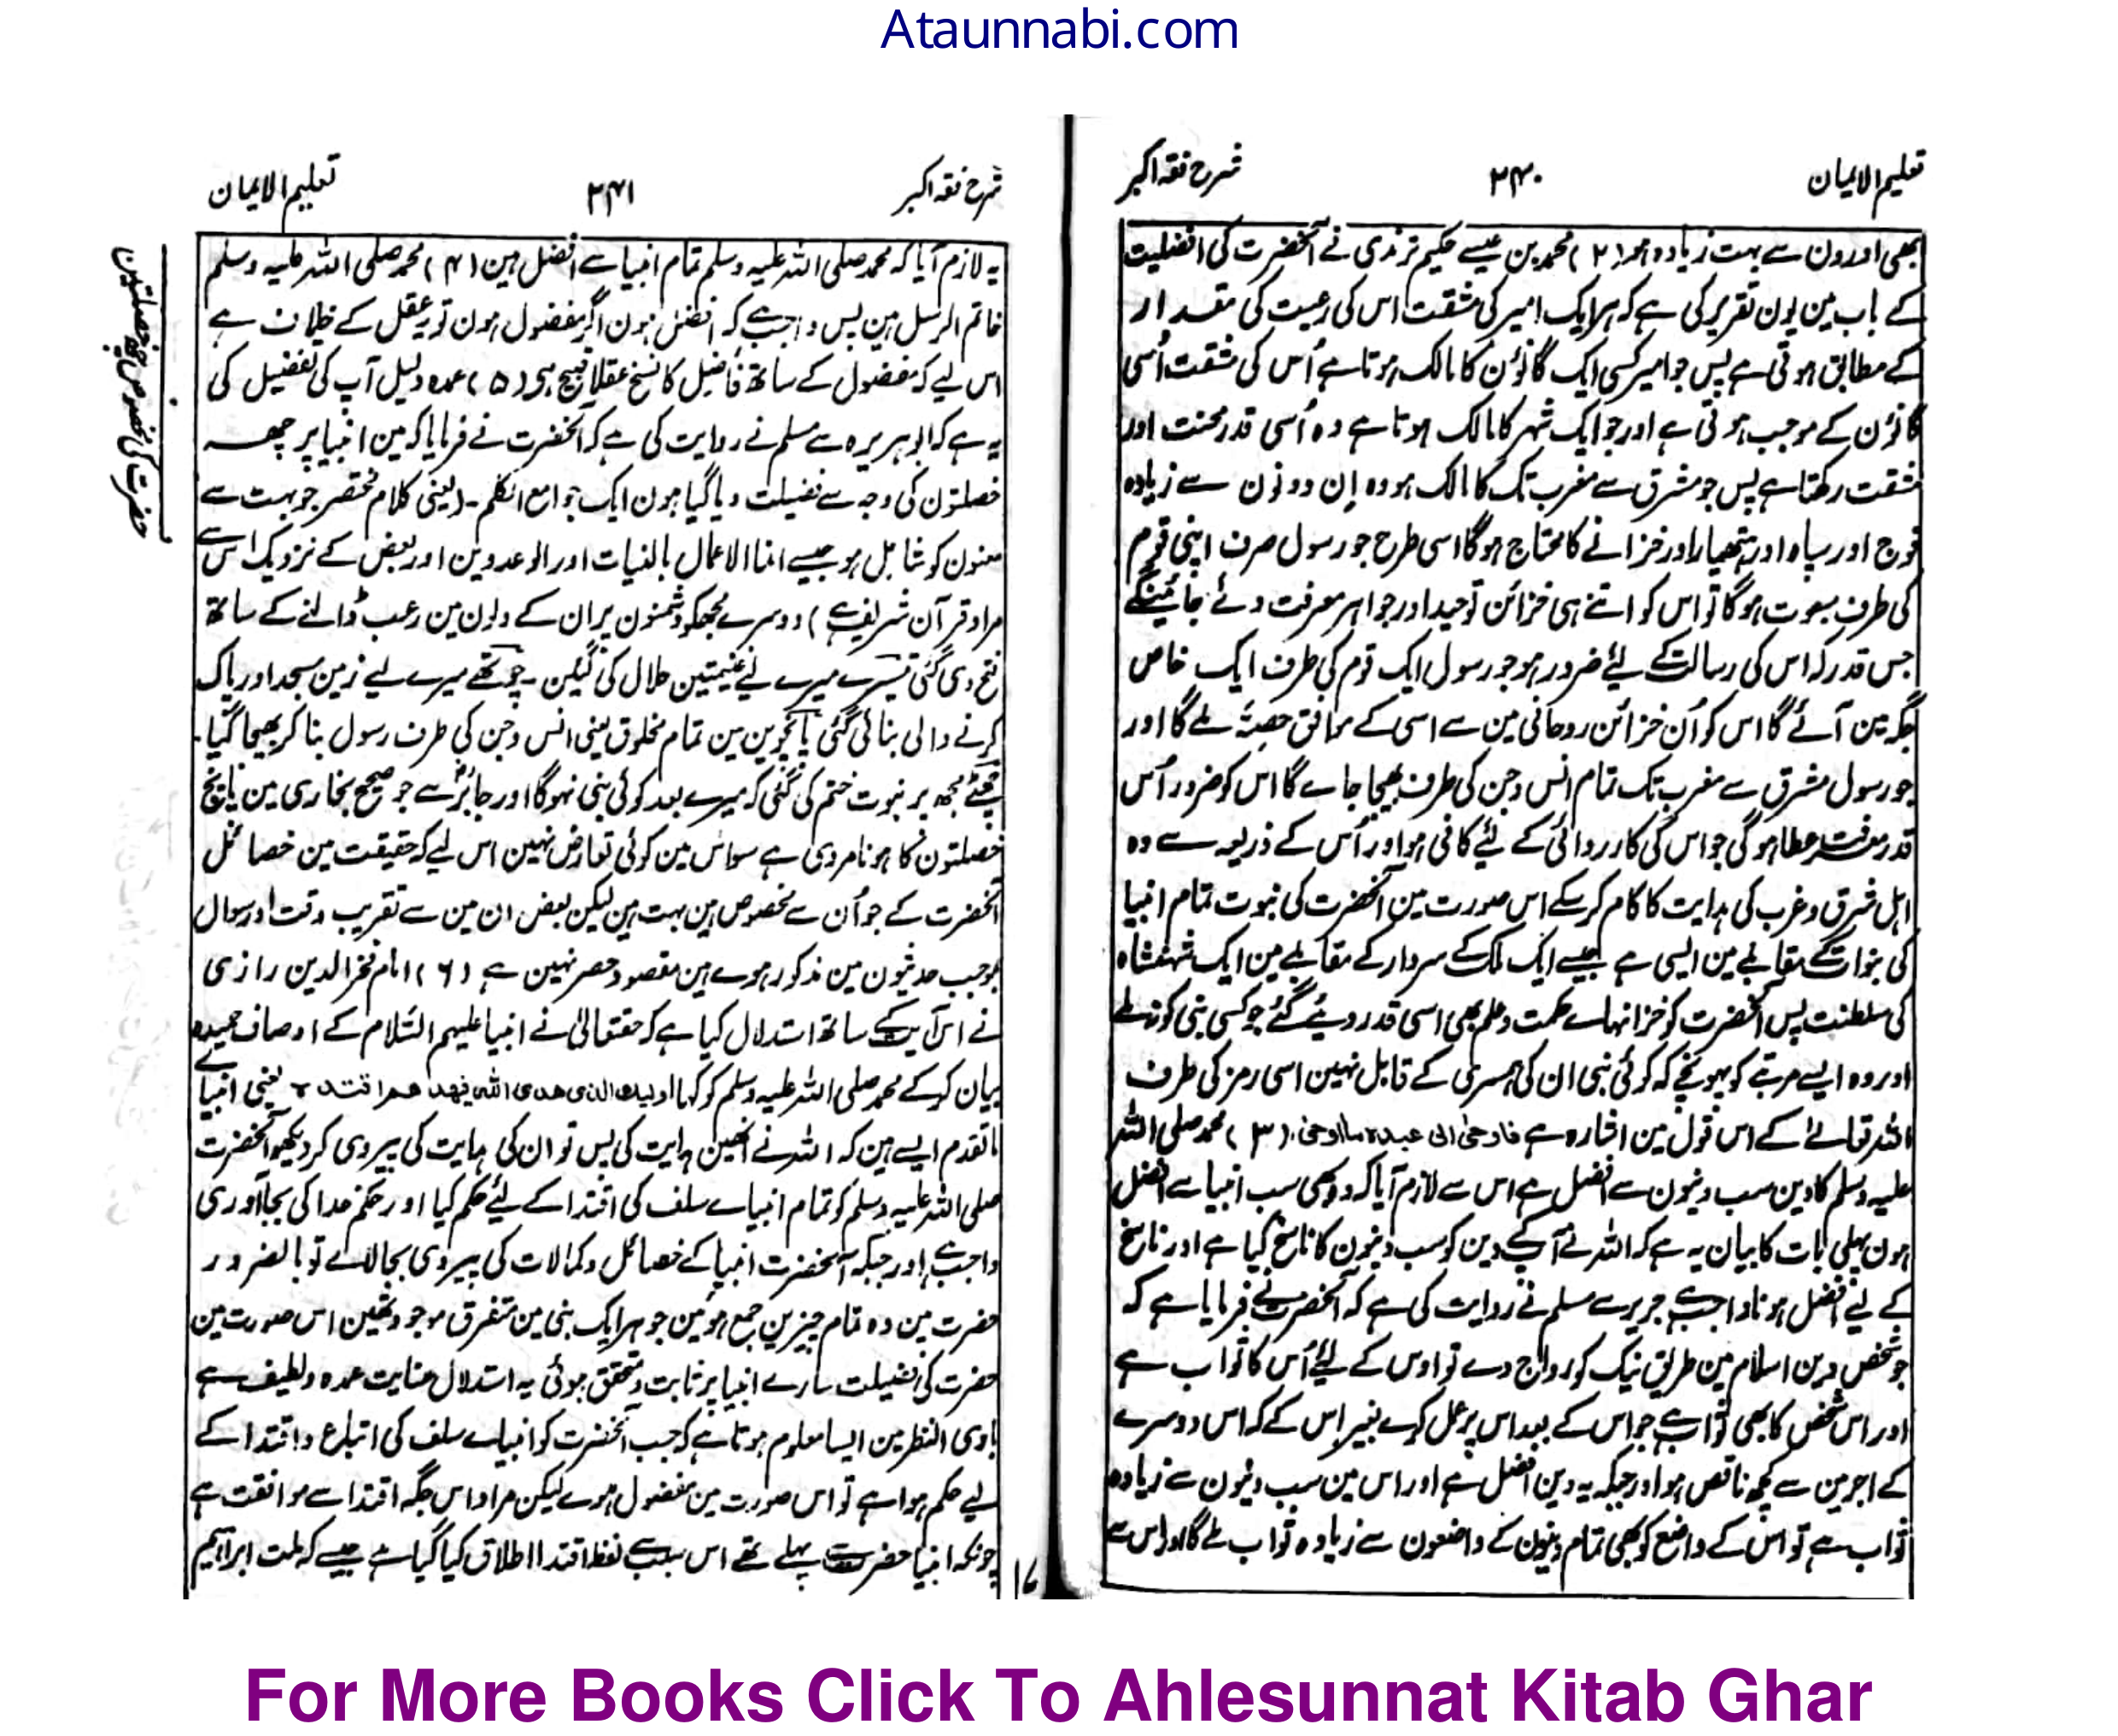 Ataunnabi.com
تعلیم الایمان
۲۴۰
شرح فقہ اکبر
بھی اورون سے بہت زیادہ ہو (۲) محمد بن عیسے حکیم ترمذی نے آنحضرت کی افضلیت
کے باب مین یون تقریر کی ہے کہ ہر ایک امیر کی مشقت اس کی رعیت کی مقدار
کے مطابق ہوتی ہے پس جو امیر کسی ایک گانؤن کا مالک ہوتا ہے اُس کی مشقت اُسی
گانؤن کے موجب ہوتی ہے اور جو ایک شہر کا مالک ہوتا ہے وہ اُسی قدر محنت اور
مشقت رکھتا ہے پس جو مشرق سے مغرب تک کا مالک ہو وہ اِن دونون سے زیادہ
فوج اور سپاہ اور ہتھیار اور خزانے کا محتاج ہوگا اسی طرح جو رسول صرف اپنی قوم
کی طرف مبعوث ہوگا تو اس کو اتنے ہی خزائن توحید اور جواہر معرفت دئے جائینگے
جس قدر کہ اس کی رسالت کے لئے ضرور ہو جو رسول ایک قوم کی طرف ایک خاص
جگہ مین آئے گا اس کو اُن خزائن روحانی مین سے اسی کے موافق حصہ ملے گا اور
جو رسول مشرق سے مغرب تک تمام انس و جن کی طرف بھیجا جاے گا اس کو ضرور اُس
قدر معرفت عطا ہوگی جو اس کی کارروائی کے لئے کافی ہو اور اُس کے ذریعہ سے وہ
اہل شرق و غرب کی ہدایت کا کام کر سکے اس صورت مین آنحضرت کی نبوت تمام انبیا
کی نبوات کے مقابلے مین ایسی ہے جیسے ایک ملک کے سردار کے مقابلے مین ایک شہنشاہ
کی سلطنت پس آنحضرت کو خزانہاے حکمت و علم بھی اسی قدر دیئے گئے جو کسی نبی کو نہ ملے
اور وہ ایسے مرتبے کو پہونچے کہ کوئی نبی ان کی ہمسری کے قابل نہین اسی رمز کی طرف
اللہ تعالےٰ کے اس قول مین اشارہ ہے فاوحیٰ الی عبدہ ما اوحیٰ (۳) محمد صلی اللہ
علیہ وسلم کا دین سب دینون سے افضل ہے اس سے لازم آیا کہ وہ بھی سب انبیا سے افضل
ہون پہلی بات کا بیان یہ ہے کہ اللہ نے آپ کے دین کو سب دینون کا ناسخ کیا ہے اور ناسخ
کے لیے افضل ہونا واجب ہے جریر سے مسلم نے روایت کی ہے کہ آنحضرت نے فرمایا ہے کہ
جو شخص دین اسلام مین طریق نیک کو رواج دے تو اوس کے لیئے اُس کا ثواب ہے
اور اس شخص کا بھی ثواب ہے جو اس کے بعد اس پر عمل کرے بغیر اس کے کہ اس دوسرے
کے اجر مین سے کچھ ناقص ہو اور جبکہ یہ دین افضل ہے اور اس مین سب دینون سے زیادہ
ثواب ہے تو اس کے واضع کو بھی تمام دینون کے واضعون سے زیادہ ثواب ملے گا اور اس سے
شرح فقہ اکبر
۲۴۱
تعلیم الایمان
یہ لازم آیا کہ محمد صلی اللہ علیہ وسلم تمام انبیا سے افضل ہین (۴) محمد صلی اللہ علیہ وسلم
خاتم الرسل ہین پس واجب ہے کہ افضل ہون اگر مفضول ہون تو یہ عقل کے خلاف ہے
اس لیے کہ مفضول کے ساتھ فاضل کا نسخ عقلاً قبیح ہے (۵) عمدہ دلیل آپ کی تفضیل کی
یہ ہے کہ ابو ہریرہ سے مسلم نے روایت کی ہے کہ آنحضرت نے فرمایا کہ مین انبیا پر چھہ
خصلتون کی وجہ سے فضیلت دیا گیا ہون ایک جوامع الکلم - (یعنی کلام مختصر جو بہت سے
معنون کو شامل ہو جیسے انما الاعمال بالنیات اور الوعد دین اور بعض کے نزدیک اس سے
مراد قرآن شریف ہے) دوسرے مجھکو دشمنون پر ان کے دلون مین رعب ڈالنے کے ساتھ
فتح دی گئی تیسرے میرے لیے غنیمتین حلال کی گئین - چوتھے میرے لیے زمین مسجد اور پاک
کرنے والی بنائی گئی پانچوین مین تمام مخلوق یعنی انس و جن کی طرف رسول بنا کر بھیجا گیا -
چھٹے مجھ پر نبوت ختم کی گئی کہ میرے بعد کوئی نبی نہوگا اور جابرؓ سے جو صحیح بخاری مین پانچ
خصلتون کا ہونا مروی ہے سو اس مین کوئی تعارض نہین اس لیے کہ حقیقت مین خصائل
آنحضرت کے جو اُن سے مخصوص ہین بہت ہین لیکن بعض ان مین سے تقریب وقت اور سوال
بموجب حدیثون مین مذکور ہوے ہین مقصود حصر نہین ہے (۶) امام فخر الدین رازی
نے اس آیت کے ساتھ استدلال کیا ہے کہ حقتعالیٰ نے انبیا علیہم السّلام کے اوصاف حمیدہ
بیان کر کے محمد صلی اللہ علیہ وسلم کو کہا اولیک الذی ھدی اللہ فبھداھم اقتدہ یعنی انبیاے
ماتقدم ایسے ہین کہ اللہ نے انھین ہدایت کی پس تو ان کی ہدایت کی پیروی کر دیکھو آنحضرت
صلی اللہ علیہ وسلم کو تمام انبیاے سلف کی اقتدا کے لیئے حکم کیا اور حکم خدا کی بجا آوری
واجب ہے اور جبکہ آنحضرت انبیا کے خصائل و کمالات کی پیروی بجا لائے تو بالضرور
حضرت مین وہ تمام چیزین جمع ہوئین جو ہر ایک نبی مین متفرق موجود تھین اس صورت مین
حضرت کی فضیلت سارے انبیا پر ثابت و متحقق ہوئی یہ استدلال نہایت عمدہ و لطیف ہے
بادی النظر مین ایسا معلوم ہوتا ہے کہ جب آنحضرت کو انبیاے سلف کی اتباع و اقتدا کے
لیے حکم ہوا ہے تو اس صورت مین مفضول ہوے لیکن مراد اس جگہ اقتدا سے موافقت ہے
چونکہ انبیا حضرت سے پہلے تھے اس سبب سے لفظ اقتدا اطلاق کیا گیا ہے جیسے کہ ملت ابراہیم
حضرت کی مخصوص چھ خصلتین
۱۶
For More Books Click To Ahlesunnat Kitab Ghar